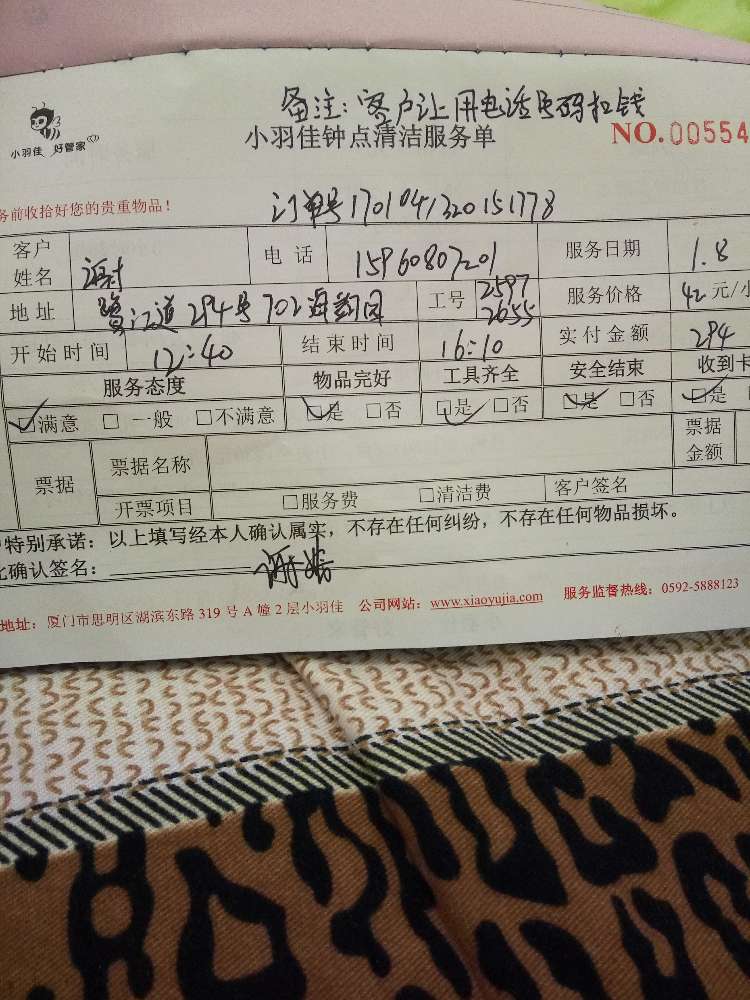 备注：客户让用电话号码扣钱
小羽佳 好管家
小羽佳钟点清洁服务单 NO.00554
务前收拾好您的贵重物品！ 订单号1701041320151778
客户姓名 谢 电话 15960807201 服务日期 1.8
地址 鹭江道294号702海韵园 工号 2597 2655 服务价格 42元/小
开始时间 12:40 结束时间 16:10 实付金额 294
服务态度 物品完好 工具齐全 安全结束 收到卡
☑满意 □一般 □不满意 ☑是 □否 ☑是 □否 ☑是 □否 ☑是
票据 票据名称 票据金额
开票项目 □服务费 □清洁费 客户签名
特别承诺：以上填写经本人确认属实，不存在任何纠纷，不存在任何物品损坏。
比确认签名：
地址：厦门市思明区湖滨东路319号A幢2层小羽佳 公司网站：www.xiaoyujia.com 服务监督热线：0592-5888123